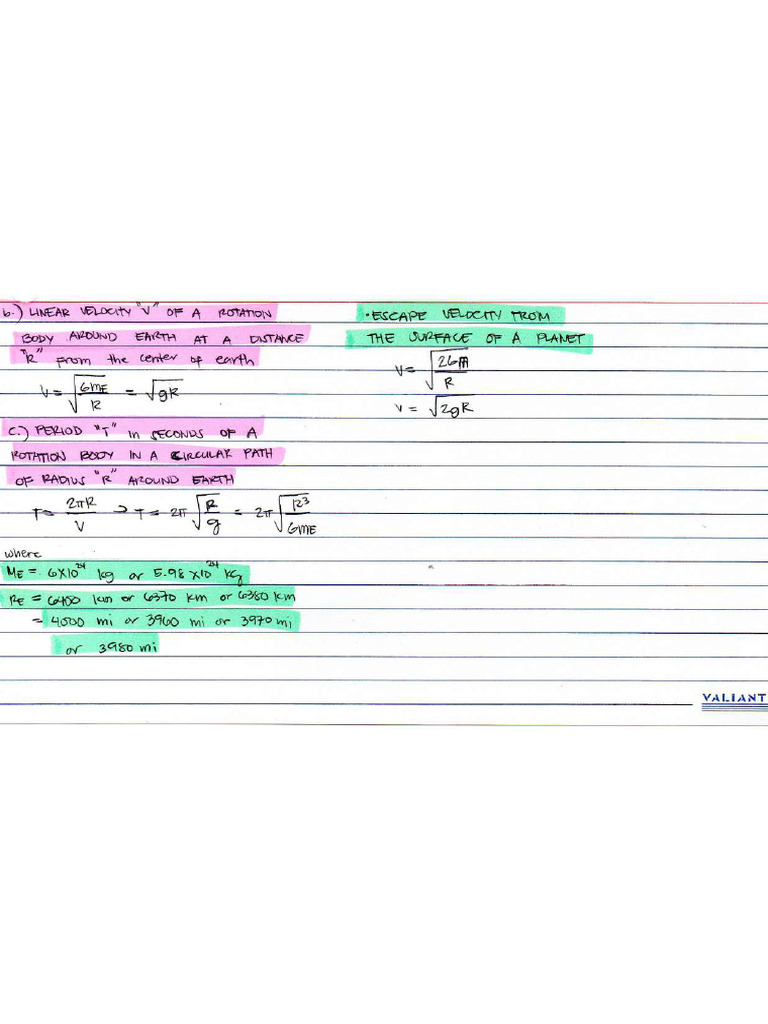 b.) LINEAR VELOCITY "V" OF A ROTATION
BODY AROUND EARTH AT A DISTANCE
"R" from the center of earth
V = √(GME/R) = √gR
C.) PERIOD "T" in SECONDS OF A
ROTATION BODY IN A CIRCULAR PATH
OF RADIUS "R" AROUND EARTH
T = 2πR/V → T = 2π√(R/g) = 2π√(R³/GME)
where
ME = 6X10²⁴ kg or 5.98 X10²⁴ kg
RE = 6400 km or 6370 km or 6380 km
= 4000 mi or 3960 mi or 3970 mi
or 3980 mi
• ESCAPE VELOCITY FROM
THE SURFACE OF A PLANET
V = √(2Gm/R)
V = √2gR
VALIANT